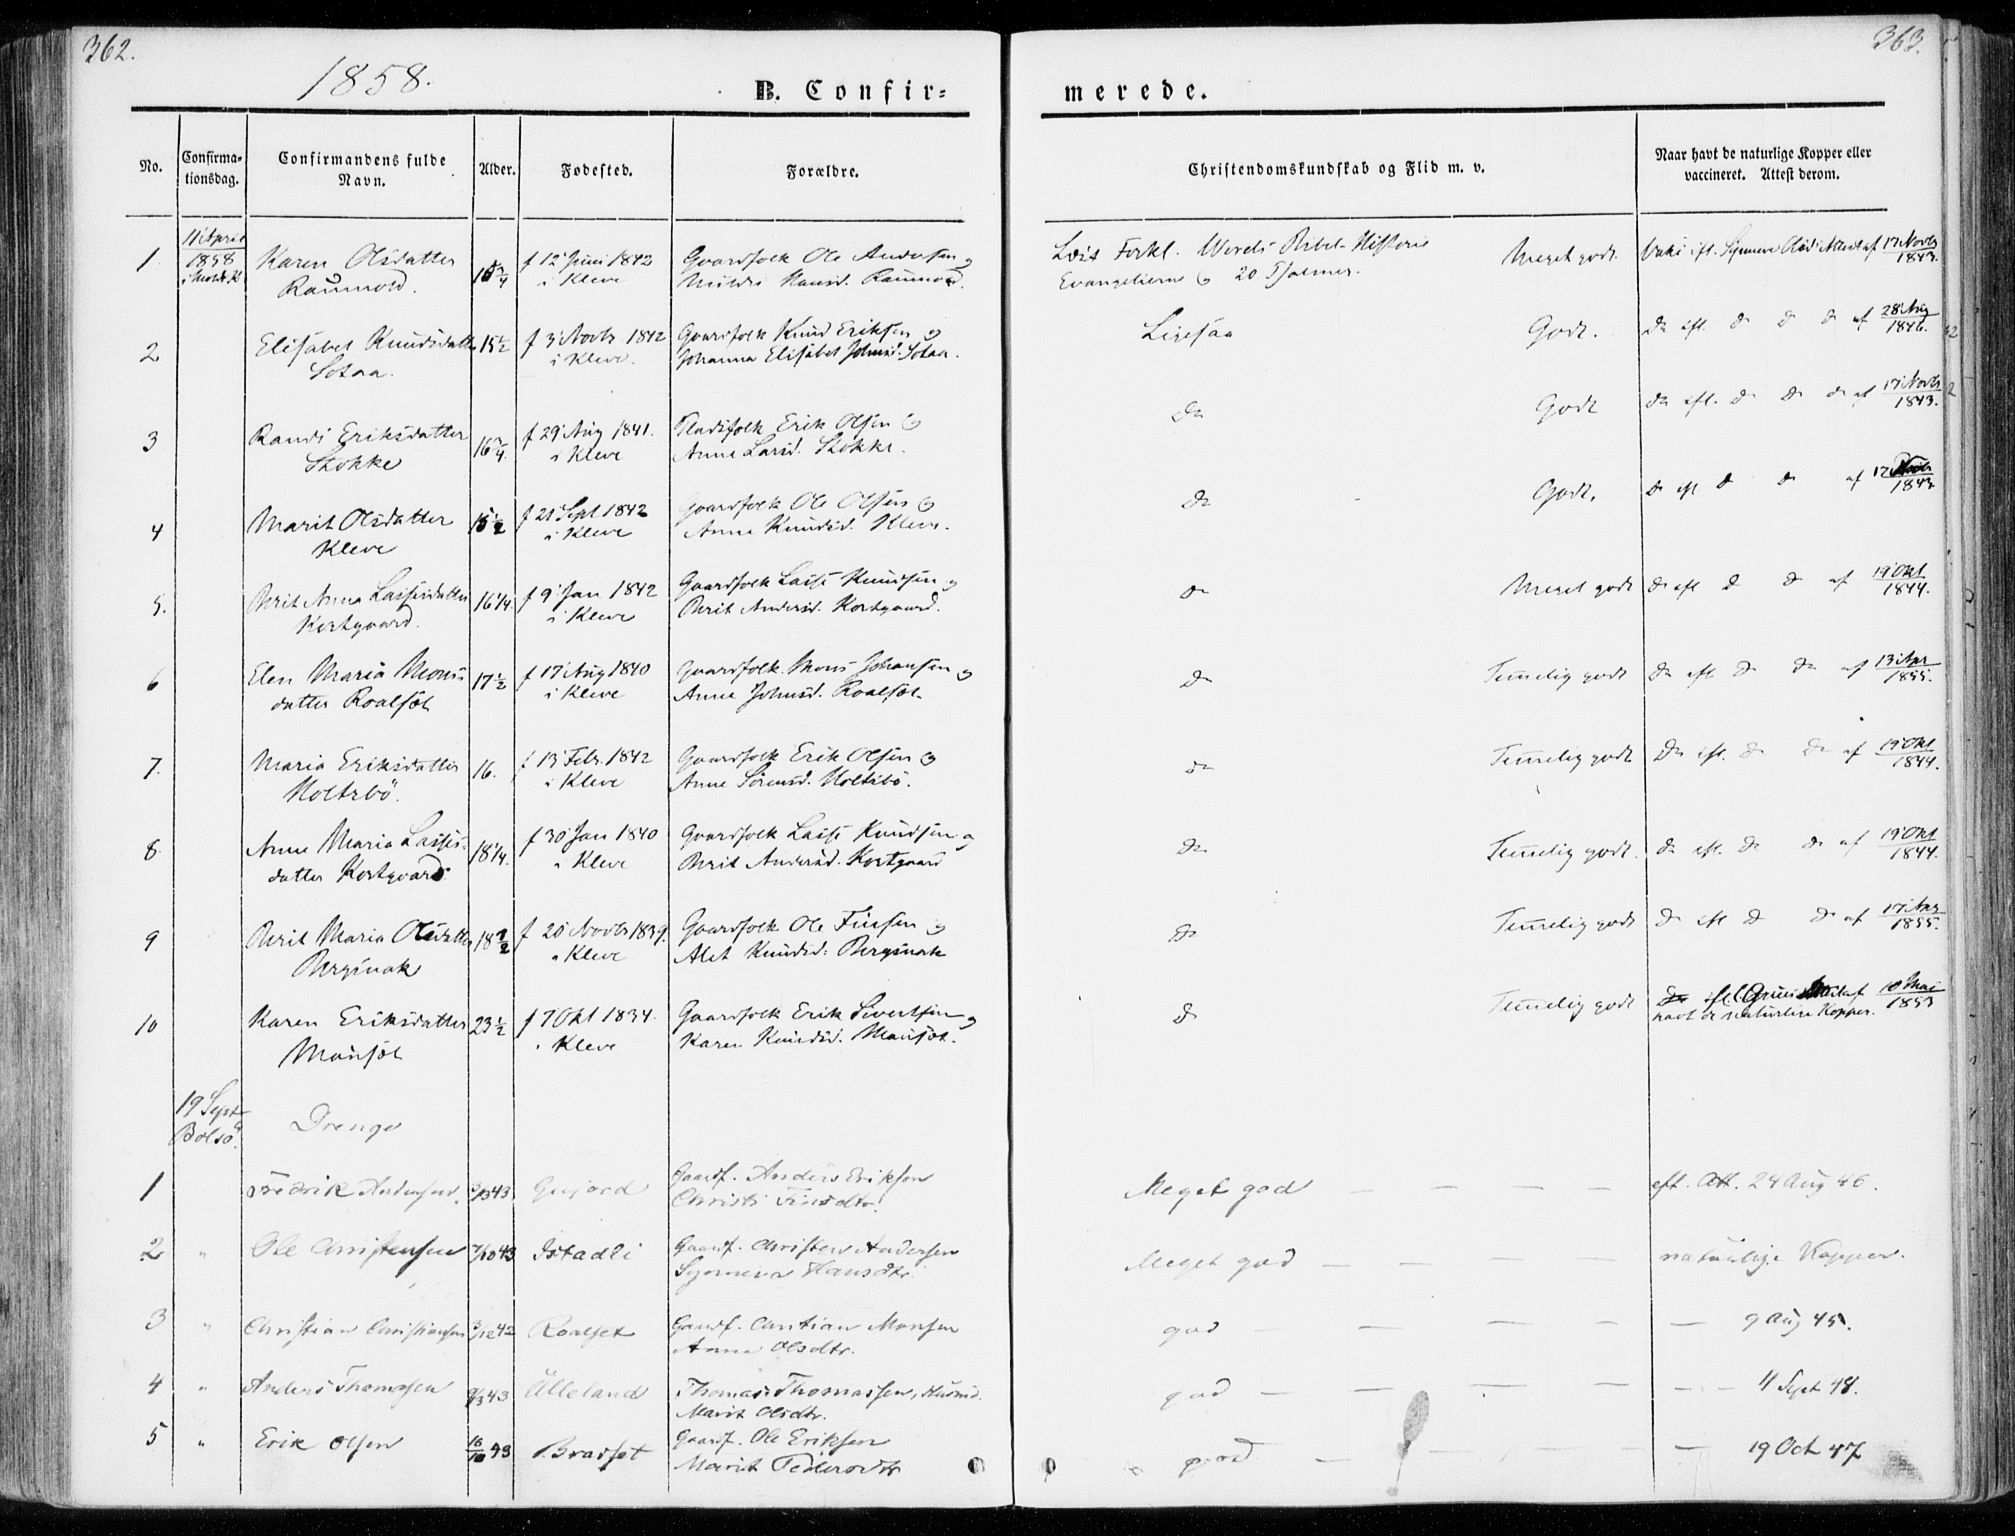 362.
1858.
B. Confir-
No.
Confirma-
tionsdag.
Confirmandens fulde
Navn.
Alder.
Fødested.
Forældre.
11 April
1858
1 Karen Olsdatter f 12 Juni 1842 Gaardfolk Ole Andersen og
i Kleve
2 Elisabet Knudsdatter 15 1/2 f 3 Novbr 1842 Gaardfolk Knud Eriksen og
Sotaa. i Kleve. Johanna Elisabet Johnsd. Sotaa.
3 Randi Eriksdatter f 29 Aug 1841. Pladsfolk Erik Olsen og
Stokke i Kleve Anne Larsd. Stokke.
4 Marit Olsdatter 15 1/2 f 21 Sept 1842 Gaardfolk Ole Olsen og
Kleve i Kleve Anne Knudsd. Kleve.
5. Berit Anna Lassesdatter 16 1/4. f 9 Jan 1842 Gaardfolk Lasse Knudsen og
Kortgaard. i Kleve Berit Andersd. Kortgaard.
6 Elen Maria Mons- 17 1/2 f 17 Aug 1840 Gaardfolk Mons Johansen og
datter Roalset i Kleve Anne Johnsd. Roalset.
7. Maria Eriksdatter 16. f 13 Febr. 1842 Gaardfolk Erik Olsen og
Holtebö. i Kleve Anne Sörensd. Holtebö.
8. Anne Maria Lasses- 18 1/4. f 30 Jan 1840 Gaardfolk Lasse Knudsen og
datter Kortgaard i Kleve Berit Andersd. Kortgaard
9 Berit Maria Olsdatter 18 1/2 f 20 Novbr 1839. Gaardfolk Ole Finsen og
i Kleve Alet Knudsd.
10 Karen Eriksdatter 23 1/2 f 7 Okt 1834. Gaardfolk Erik Sivertsen og
Mauset i Kleve Karen Knudsd. Mauset.
19 Sept
Bolsö.
Drenge
1 Fredrik Andersen. Gaardf. Anders Eriksen
Christi Finsdtr.
2 " Ole Christensen Istadli Gaardf. Christen Andersen
Hansdtr.
3 " Christian Christiansen 42 Roalset Gaardf. Christian Monsen
Anne Olsdtr.
4 " Anders Thomassen 43 Ulleland Thomas Thomassen, Husmd.
Marit Olsdtr.
5 " Erik Olsen 43 Bradset Gaardf. Ole Eriksen
Marit Pedersdtr
363.
merede.
Christendomskundskab og Flid m. v.
Naar havt de naturlige Kopper eller
vaccineret. Attest derom.
Læst Forkl. Bibel-Historie Meget godt. 17 Novbr
Evangelierne og 20 Psalmer. 1843.
Ligesaa Godt. Do eft. do do do af 28 Aug
1846.
Do Godt Do eft. do do do af 17 Novbr
1843.
Do Godt. Do eft. do do af 17 Novbr
1843
Do Meget godt Do eft do do af 19 Okt
1844.
Do Temmelig godt Do eft. do do af 13 Apr
1855.
Do Temmelig godt Do eft. do do af 19 Okt
1844.
Do Temmelig godt. Do eft. do do af 19 Okt
1844.
Do Temmelig godt Do eft do do af 17 Apr
1855.
Do Temmelig godt 10 Mai
havt de naturlige Kopper. 1853
Meget god — — — — eft. Att. 24 Aug 46.
Meget god — — — — naturlige Kopper.
god — — — — — 9 Aug 45.
god — — — — — 11 Sept 48.
god — — — — — 19 Oct 47